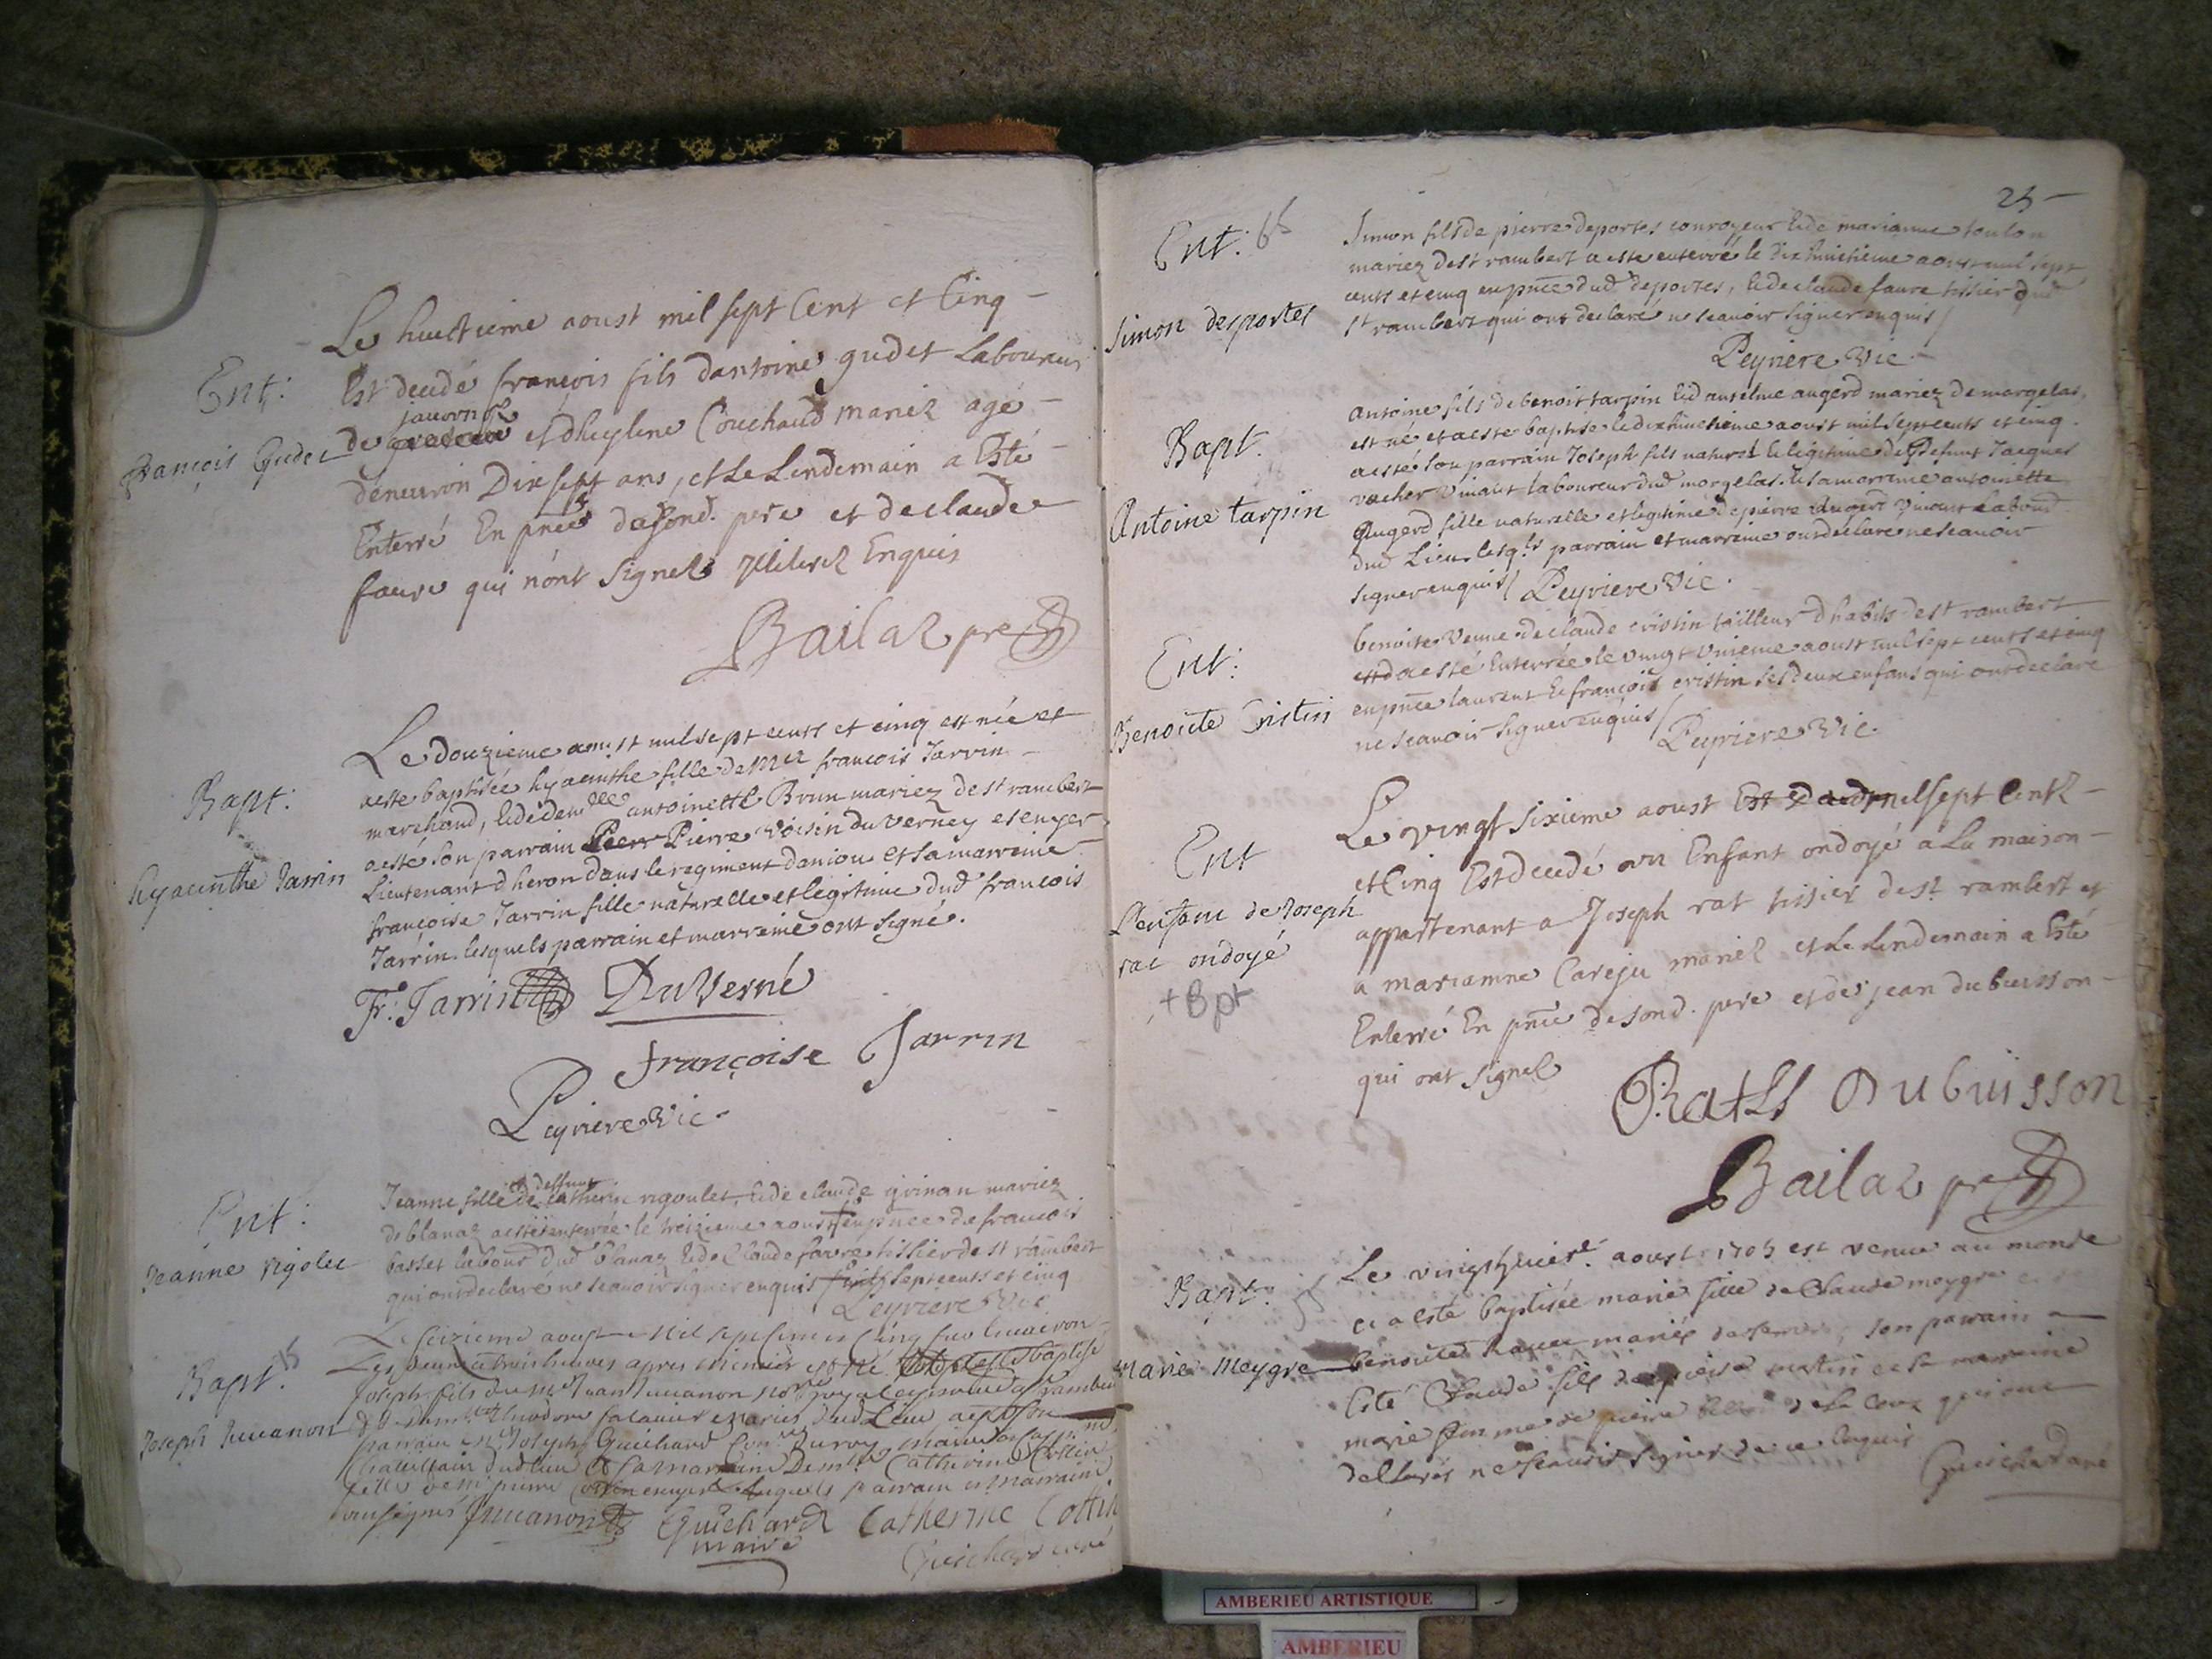 Ent:
François Gudet
Le huictieme aoust mil sept Cent et Cinq
Est decedé françois fils dantoine gudet Laboureur
de et dheylene Couchaud mariez agé
denuiron Dix sept ans, et Le Lendemain a Esté
Enterré En pnce de sond. pere et de claude
faure qui nont signez Enquis
Bailaz pre
Bapt:
hyacinthe Jarrin
Le douzieme aoust mil sept cents et cinq est née et
aeste baptisée hyacinthe fille de françois Jarrin
marchand, & de demlle antoinette Brun mariez de st rambert
aesté son parrain Pierre Voisin du Verney escuyer
Lieutenant dheron dans le regiment daniou et sa marreine
françoise Jarrin fille naturelle et legitime dud françois
Jarrin. lesquels parrain et marreine ont signé.
Fr: Jarrin DuVerné
françoise Jarrin
Peyriere Vic.
Ent:
Jeanne rigolet
Jeanne fille de deffunt rigoulet, & de claude grinan mariez
de blanaz aesté enterrée le treizieme aoust + en pnce de francois
basset labour dud blanaz & de Claude favre tissier de st rambert
qui ont declaré ne scauoir signer enquis sept cents et cinq
Peyriere Vic.
Bapt. 15
Joseph Juuanon
Le seizieme aoust Mil sept Cent et Cinq
heures apres est né baptisé
Joseph fils du Juuanon royal rambert
mariez dud Lieu
parrain Joseph Guichard du roy maire
Chatellain dud lieu et sa marraine Demlle Catherine Cottin
fille de pierre parrain et marraine
soussignés Juuanon Guichard Catherine Cottin
maire
Guichard curé
25
Ent: 16
Simon desportes
Simon fils de pierre deportes conroyeur & de marianne toulon
mariez de st rambert a este enterré le dix huictieme aoust mil sept
cents et cinq en pnce dud deportes, & de claude faure tissier dud
st rambert qui ont declaré ne scauoir signer enquis
Peyriere Vic.
Bapt.
Antoine tarpin
antoine fils de benoit tarpin & d anselme augerd mariez de morgelas,
est né et aeste baptisé le dix huictieme aoust mil sept cents et cinq.
aesté son parrain Joseph fils naturel & legitime de defunt Jacques
vacher viuant laboureur dud morgelas. & sa marreine antoinette
Augerd fille naturelle et legitime de pierre Augerd viuant labour
dud Lieu lesqls parrain et marreine ont declare ne scauoir
signer enquis Peyriere Vic.
Ent:
Benoite Cristin
benoite Veuue de claude cristin tailleur dhabits de st rambert
aesté Enterrée le vingt Vnieme aoust mil sept cents et cinq
en pnce laurent & françois cristin ses deux enfans qui ont declare
ne scauoir signer enquis
Peyriere Vic.
Ent
L'enfant de Joseph
rat ondoyé
+ Bpt
Le vingt sixieme aoust mil sept Centz
et Cinq Est decedé un Enfant ondoyé a La maison
appartenant a Joseph rat tissier de st. rambert et
a marianne Careju mariez et Le Lendemain a Esté
Enterré En pnce de sond. pere et de jean dubuisson
qui ont signez
Rat dubuisson
Bailaz pre
Bapt.
marie Meygre
Le vingthuict. aoust 1705 est venue au monde
et a esté baptisée marie fille de Claude meygre
benoite mariez son parrain a
Esté Claude fils de pierre martin et sa marreine
marie femme de pierre de La Coux qui ont
declarés ne scauoir signer de ce Enquis
Guichard curé
AMBERIEU ARTISTIQUE
AMBERIEU